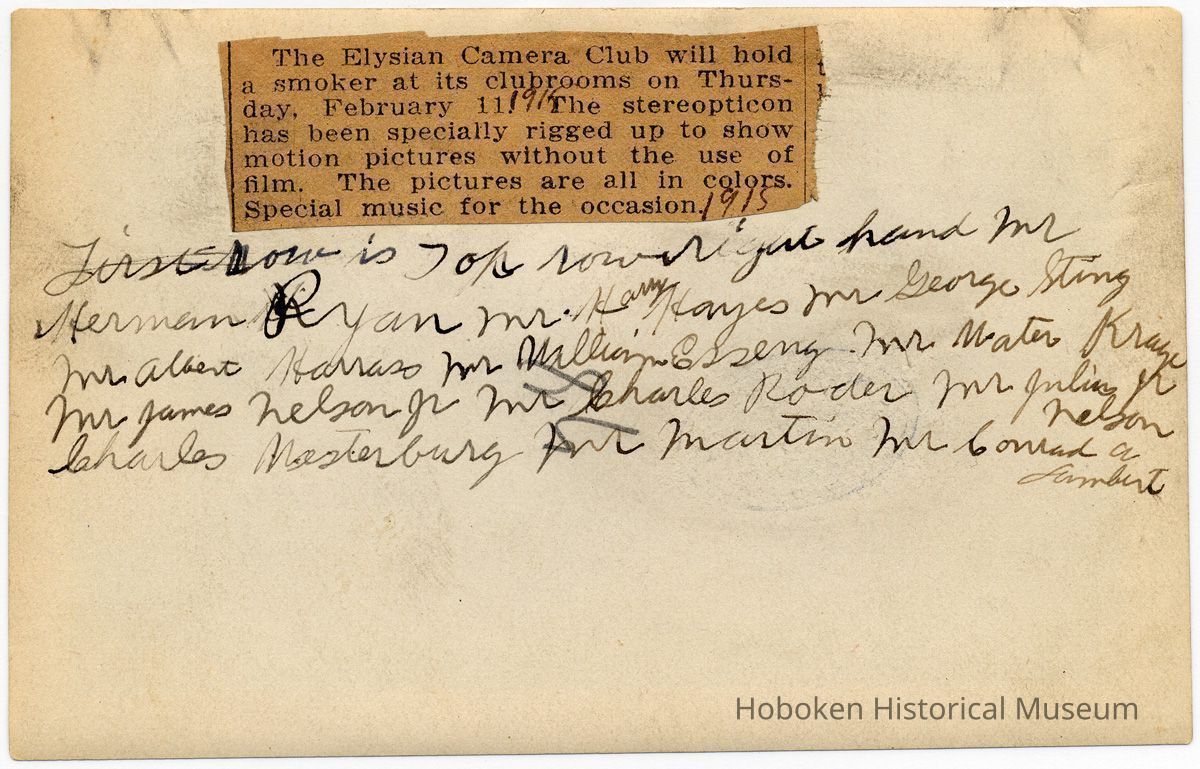 The Elysian Camera Club will hold
a smoker at its clubrooms on Thurs-
day, February 11. 1915 The stereopticon
has been specially rigged up to show
motion pictures without the use of
film. The pictures are all in colors.
Special music for the occasion. 1915
First row is Top row right hand Mr
Herman Ryan Mr. Harry Hayes Mr George Sting
Mr Albert Harrass Mr William Esseng Mr Water
Mr James Nelson Jr Mr Charles Roder Mr Julius Jr
Nelson
Charles Westerburg Mr Martin Mr Conrad a
Lambert
Hoboken Historical Museum